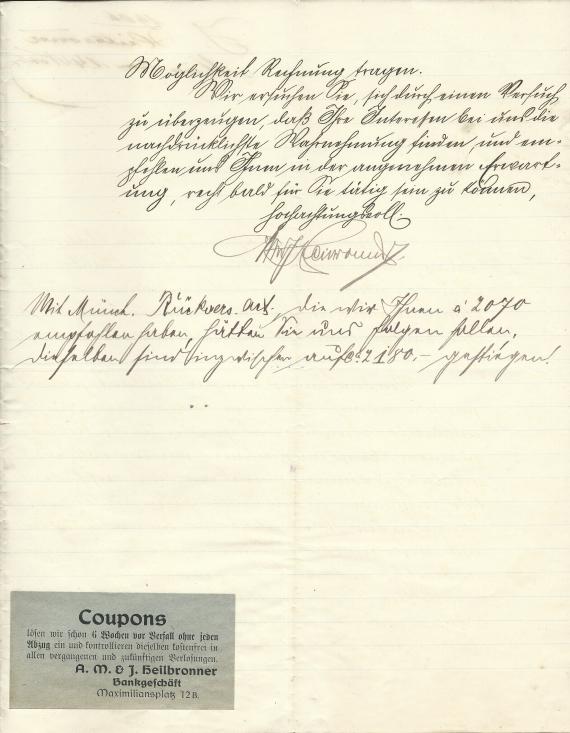 Möglichkeit Rechnung tragen.
Wir ersuchen Sie, sich durch einen Versuch
zu überzeugen, daß Ihre Interessen bei uns die
nachdrücklichste Wahrnehmung finden, und em-
pfehlen uns Ihnen in der angenehmen Erwart-
ung, recht bald für Sie tätig sein zu können,
Hochachtungsvoll:
Mit Münch. Rückvers. Act. die wir Ihnen à 2070
empfohlen haben, hätten Sie uns folgen sollen,
dieselben sind inzwischen auf 2180.- gestiegen!
Coupons
lösen wir schon 6 Wochen vor Verfall ohne jeden
Abzug ein und kontrollieren dieselben kostenfrei in
allen vergangenen und zukünftigen Verlosungen.
A. M. & J. Heilbronner
Bankgeschäft
Maximiliansplatz 12 B.